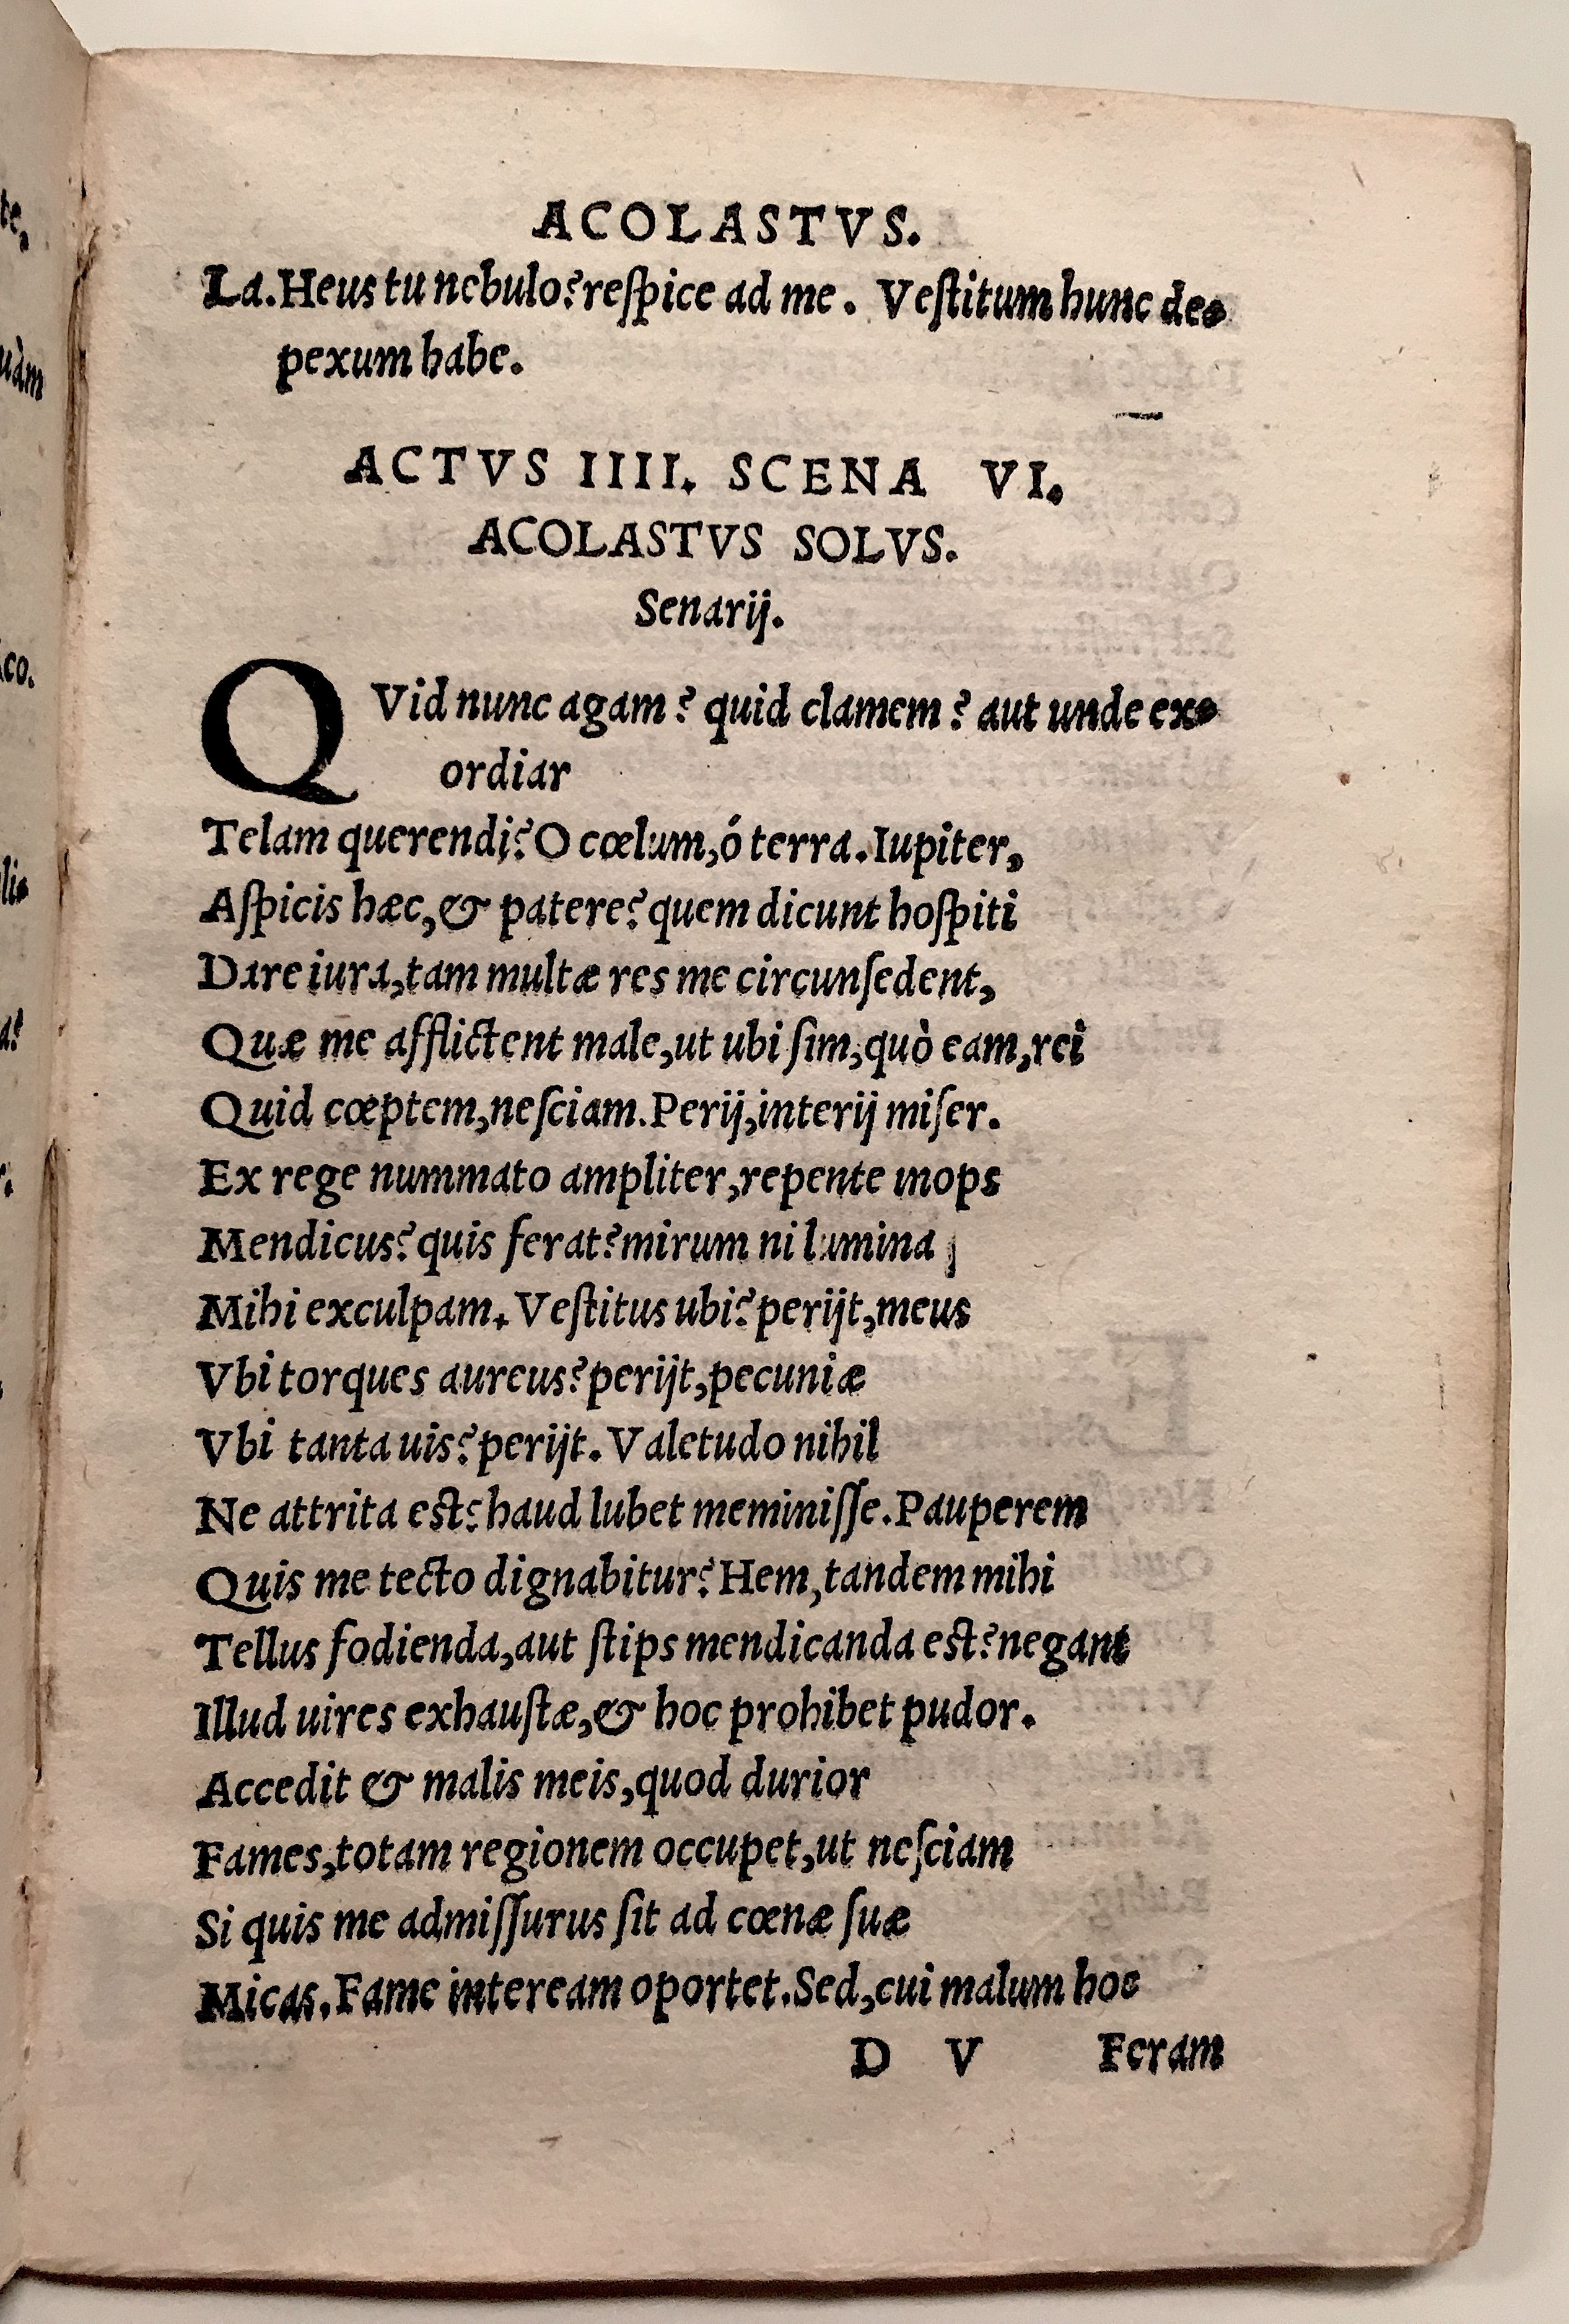 ACOLASTVS.
La. Heus tu nebulo? reſpice ad me. Veſtitum hunc de-
pexum habe.
ACTVS IIII. SCENA VI.
ACOLASTVS SOLVS.
Senarij.
QVid nunc agam? quid clamem? aut unde ex-
ordiar
Telam querendi? O cœlum, ó terra. Iupiter,
Aſpicis hæc, & patere? quem dicunt hoſpiti
Dare iura, tam multæ res me circunſedent,
Quæ me afflictent male, ut ubi ſim, quò eam, rei
Quid cœptem, neſciam. Perij, interij miſer.
Ex rege nummato ampliter, repente inops
Mendicus? quis ferat? mirum ni lumina
Mihi exculpam. Veſtitus ubi? perijt, meus
Vbi torques aureus? perijt, pecuniæ
Vbi tanta uis? perijt. Valetudo nihil
Ne attrita est? haud lubet meminiſſe. Pauperem
Quis me tecto dignabitur? Hem, tandem mihi
Tellus fodienda, aut ſtips mendicanda est? negant
Illud uires exhauſtæ, & hoc prohibet pudor.
Accedit & malis meis, quod durior
Fames, totam regionem occupet, ut neſciam
Si quis me admiſſurus ſit ad cœnæ ſuæ
Micas. Fame inteream oportet. Sed, cui malum hoc
D V Feram